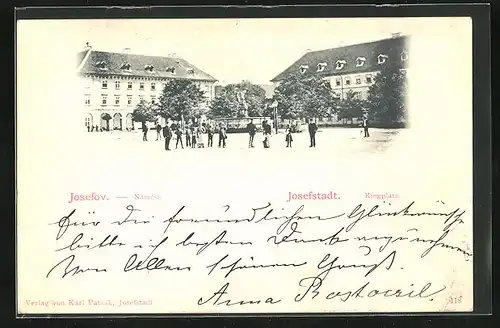 Josefov. — Náměstí. Josefstadt. Ringplatz.
für die freundlichen Glückwünsche
bitte ich besten Dank
Von Allen schönen Gruß
Anna
Verlag von Karl Patzak, Josefstadt 418